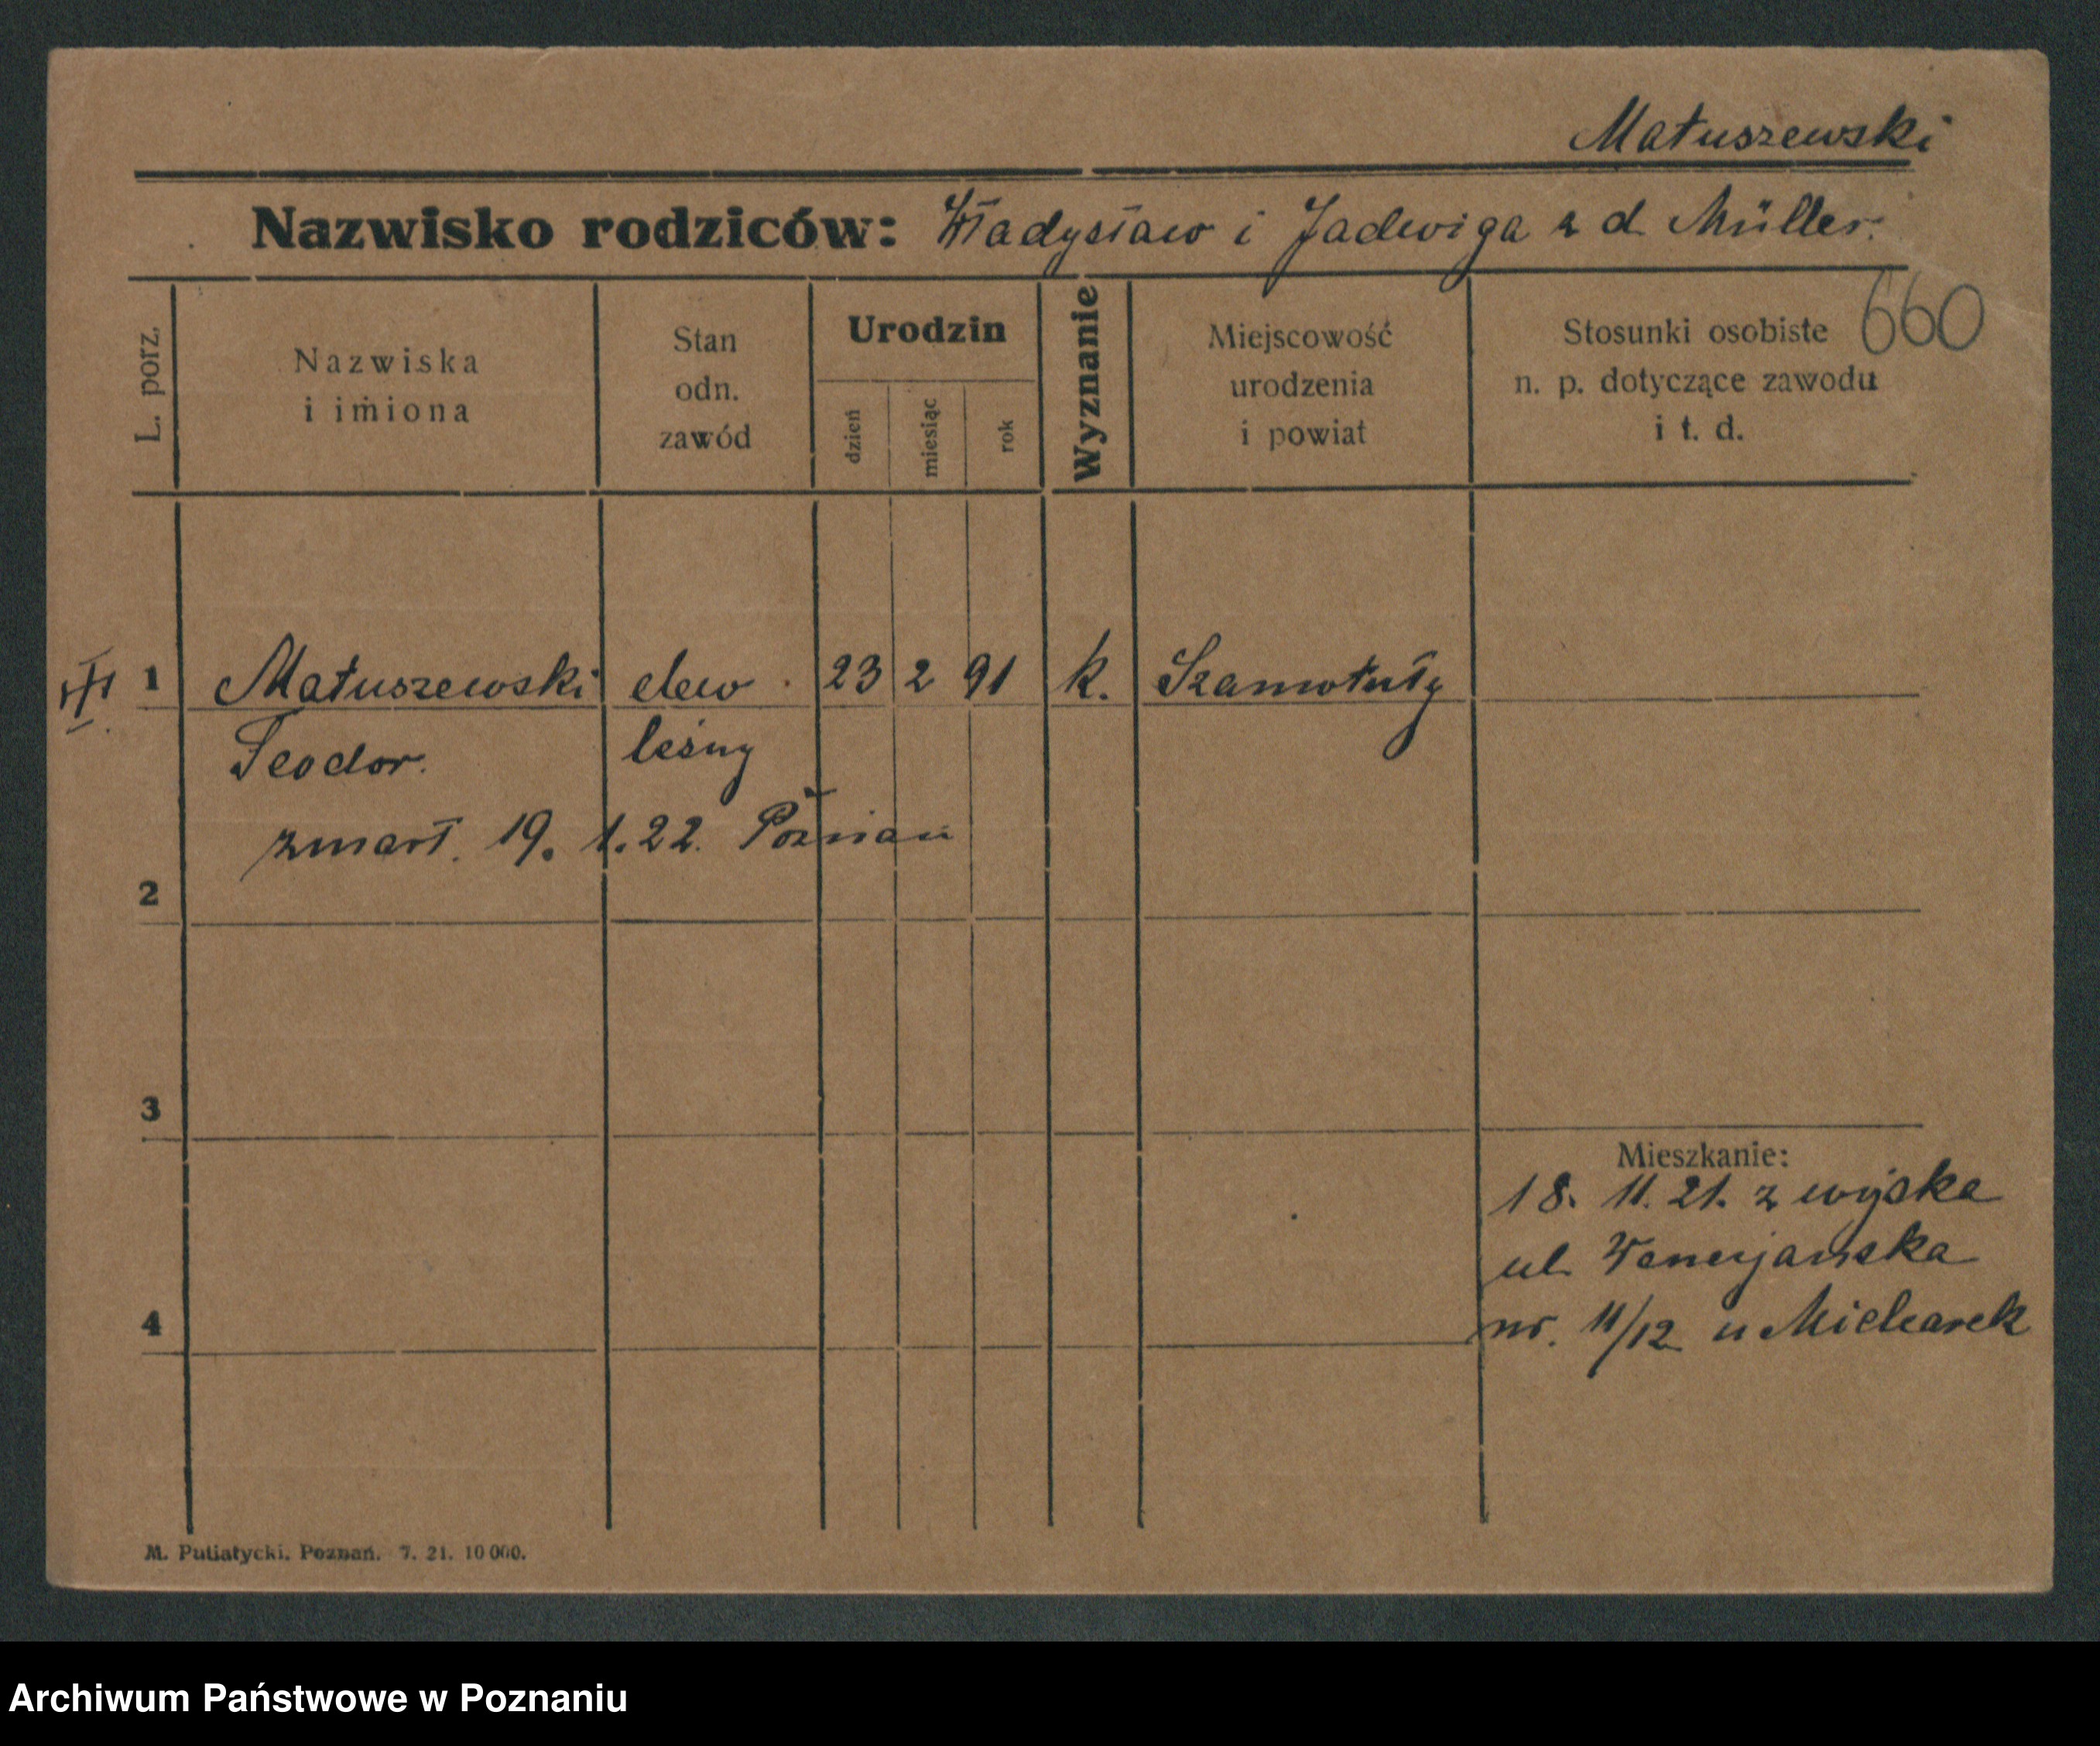 Matuszewski
Nazwisko rodziców: Władysław i Jadwiga z d Müller.
660
L. porz.
Nazwiska
i imiona
Stan
odn.
zawód
Urodzin
dzień
miesiąc
rok
Wyznanie
Miejscowość
urodzenia
i powiat
Stosunki osobiste
n. p. dotyczące zawodu
i t. d.
1 Matuszewski elew 23 2 91 k. Szamotuły
Teodor. leśny
zmarł. 19. 1. 22. Poznań
2
3
Mieszkanie:
18. 11. 21. z wojska
ul. Wenecjańska
4
nr. 11/12 u Michcarek
M. Putiatycki. Poznań. 7. 21. 10 000.
Archiwum Państwowe w Poznaniu